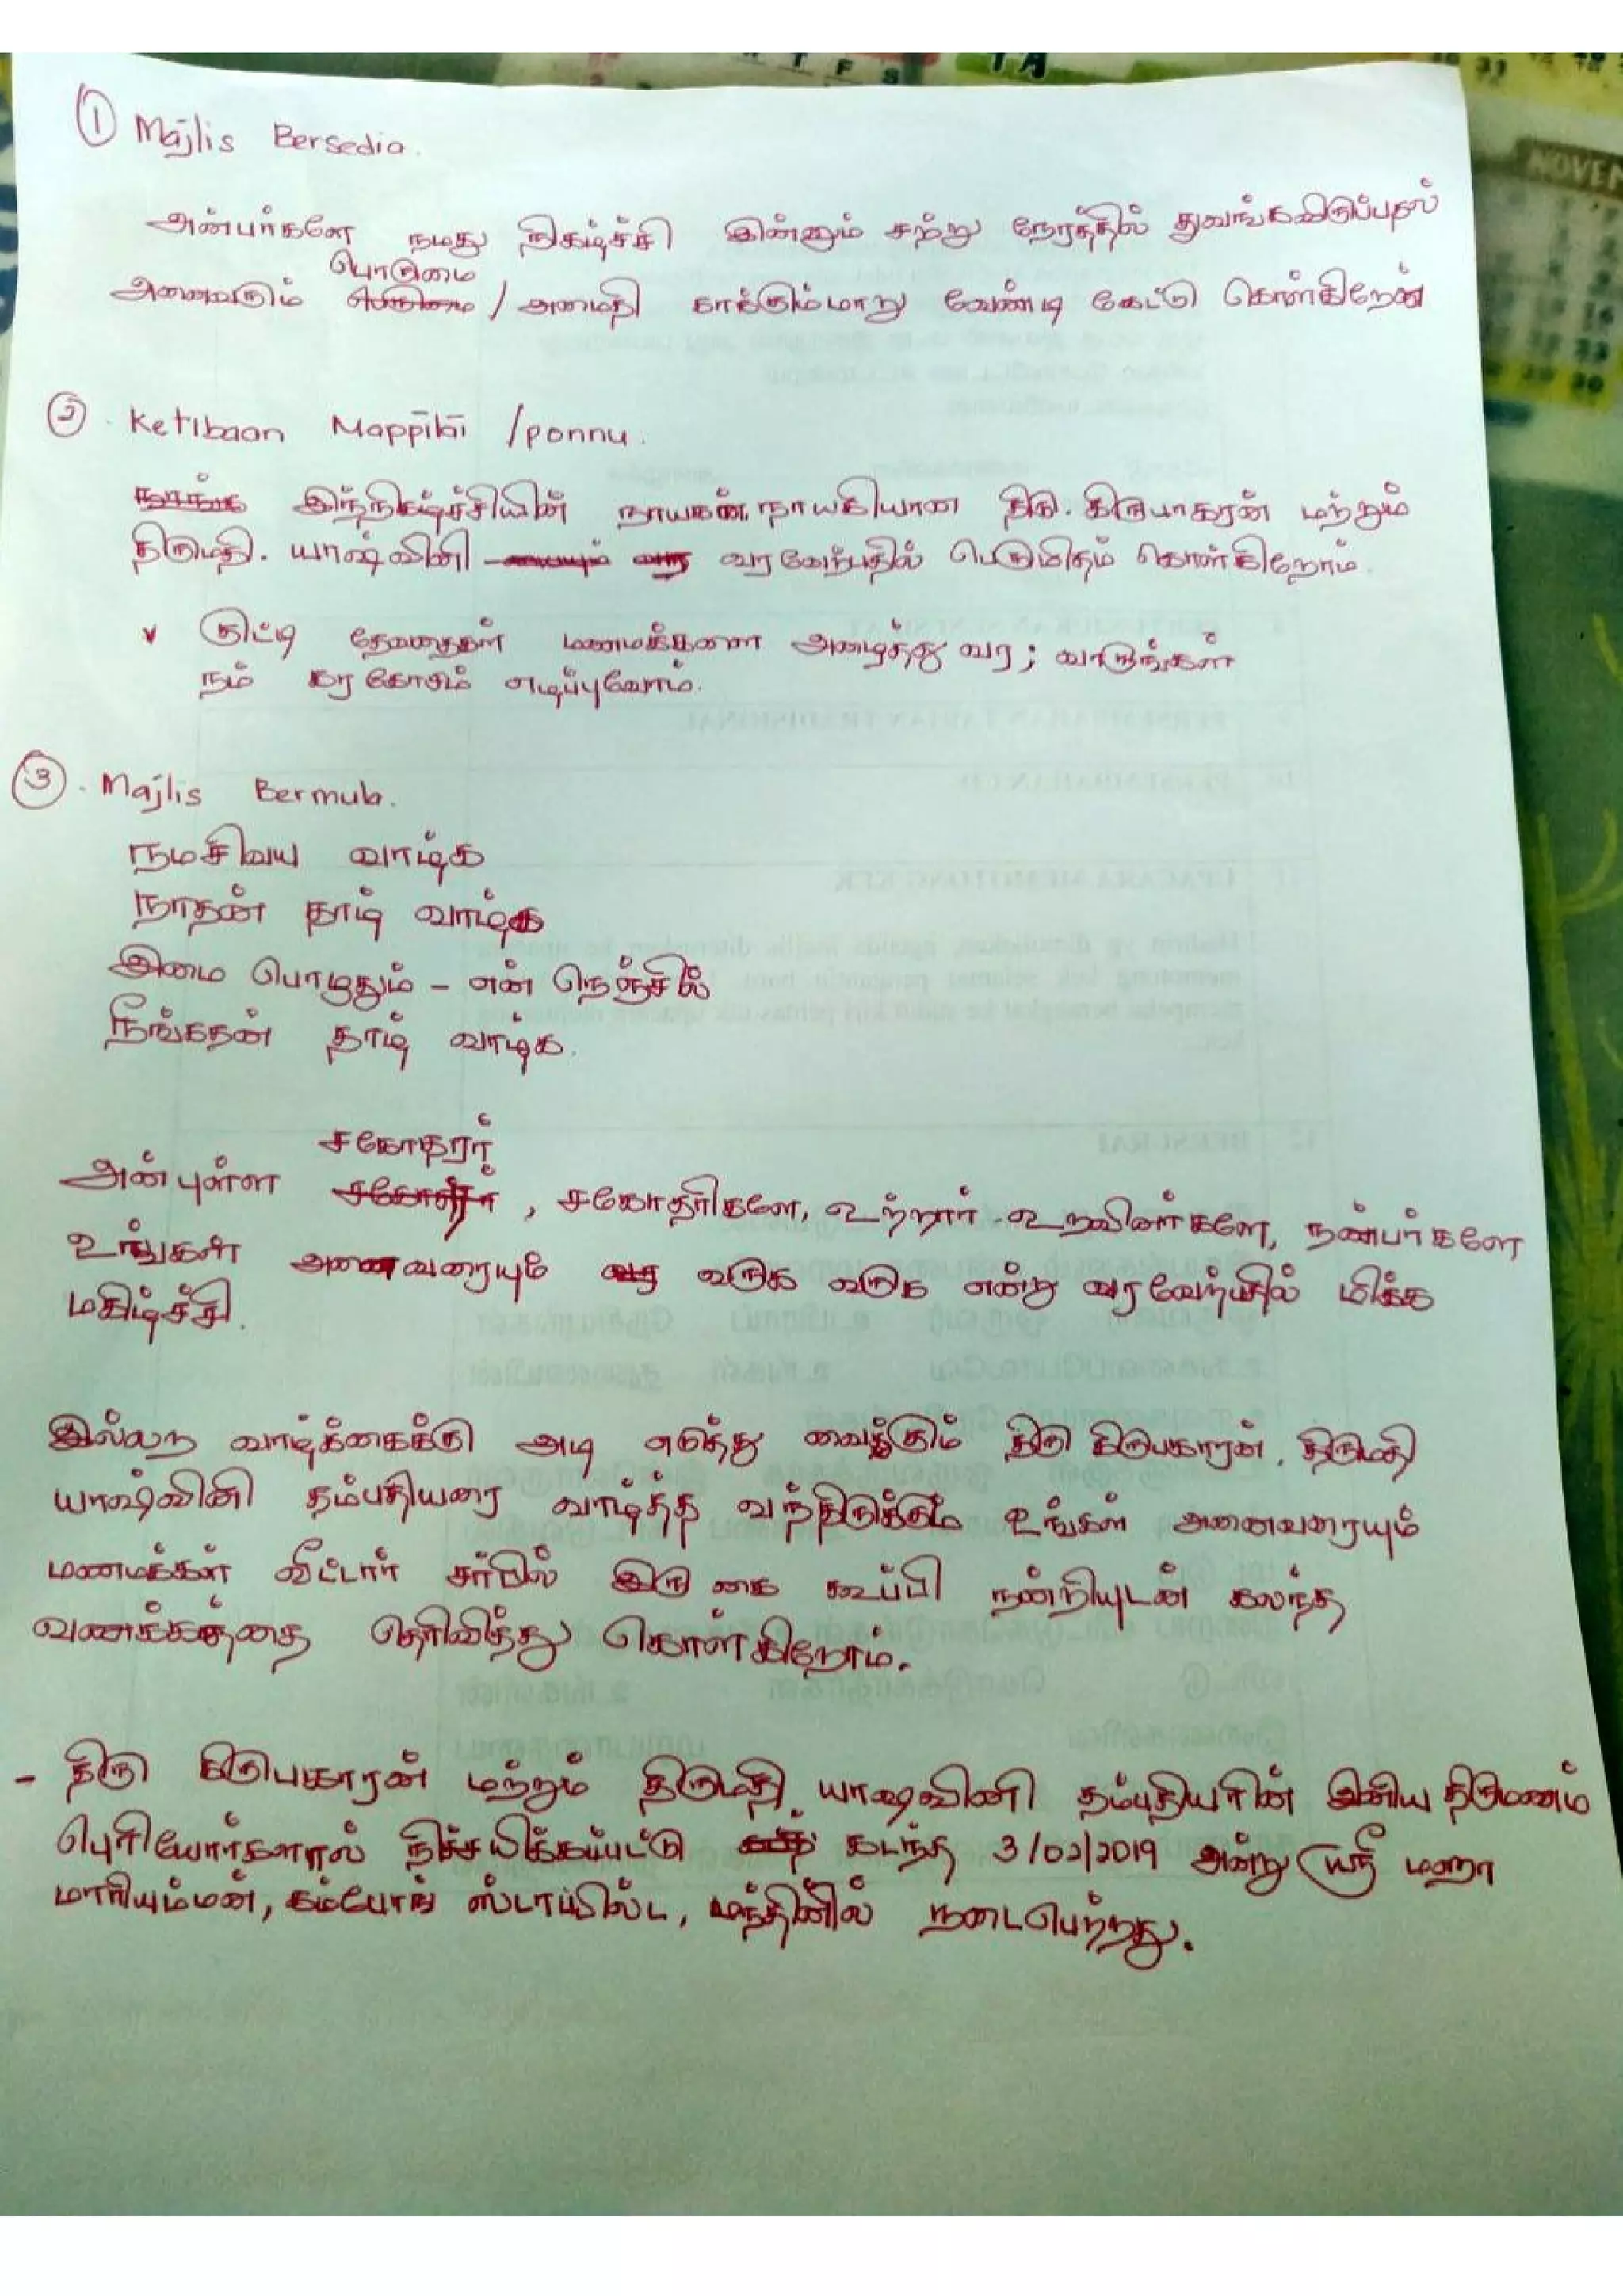 ① Majlis Bersedia.
அன்பர்களே நமது நிகழ்ச்சி இன்னும் சற்று நேரத்தில் துவங்கவிருப்பதால்
பொருமை
அனைவரும் / அமைதி காக்கும்மாறு வேண்டி கேட்டு கொள்கிறேன்
② Ketibaan Mappilai /ponnu.
இந்நிகழ்ச்சியின் நாயகன், நாயகியான திரு. கிருபாகரன் மற்றும்
திருமதி. யாஷ்வினி வரவேற்பதில் பெருமிதம் கொள்கிறோம்.
குட்டி தேவதைகள் மணமக்களை அழைத்து வர; வாருங்கள்
நம் கரகோசம் எழுப்புவோம்.
③. Majlis Bermula.
நமசிவய வாழ்க
நாதன் தாழ் வாழ்க
இமை பொழுதும் - என் நெஞ்சில்
நீங்கதன் தாழ் வாழ்க.
சகோதரர்
அன்புள்ள , சகோதரிகளே, உற்றார் உறவினர்களே, நண்பர்களே
உங்கள் அனைவரையும் வருக வருக என்று வரவேற்பதில் மிக்க
மகிழ்ச்சி.
இல்லற வாழ்க்கைக்கு அடி எடுத்து வைக்கும் திரு கிருபகாரன். திருமதி
யாஷ்வினி தம்பதியரை வாழ்த்த வந்திருக்கும் உங்கள் அனைவரையும்
மணமக்கள் வீட்டார் சார்பில் இரு கை கூப்பி நன்றியுடன் கலந்த
வணக்கத்தை தெரிவித்து கொள்கிறோம்.
- திரு கிருபகாரன் மற்றும் திருமதி. யாஷ்வினி தம்பதியரின் இனிய திருமணம்
பெரியோர்களால் நிச்சயிக்கப்பட்டு கடந்த 3/02/2019 அன்று ஸ்ரீ மஹா
மாரியம்மன், கம்போங் ஸ்டாப்பில்ட, மந்தினில் நடைபெற்றது.